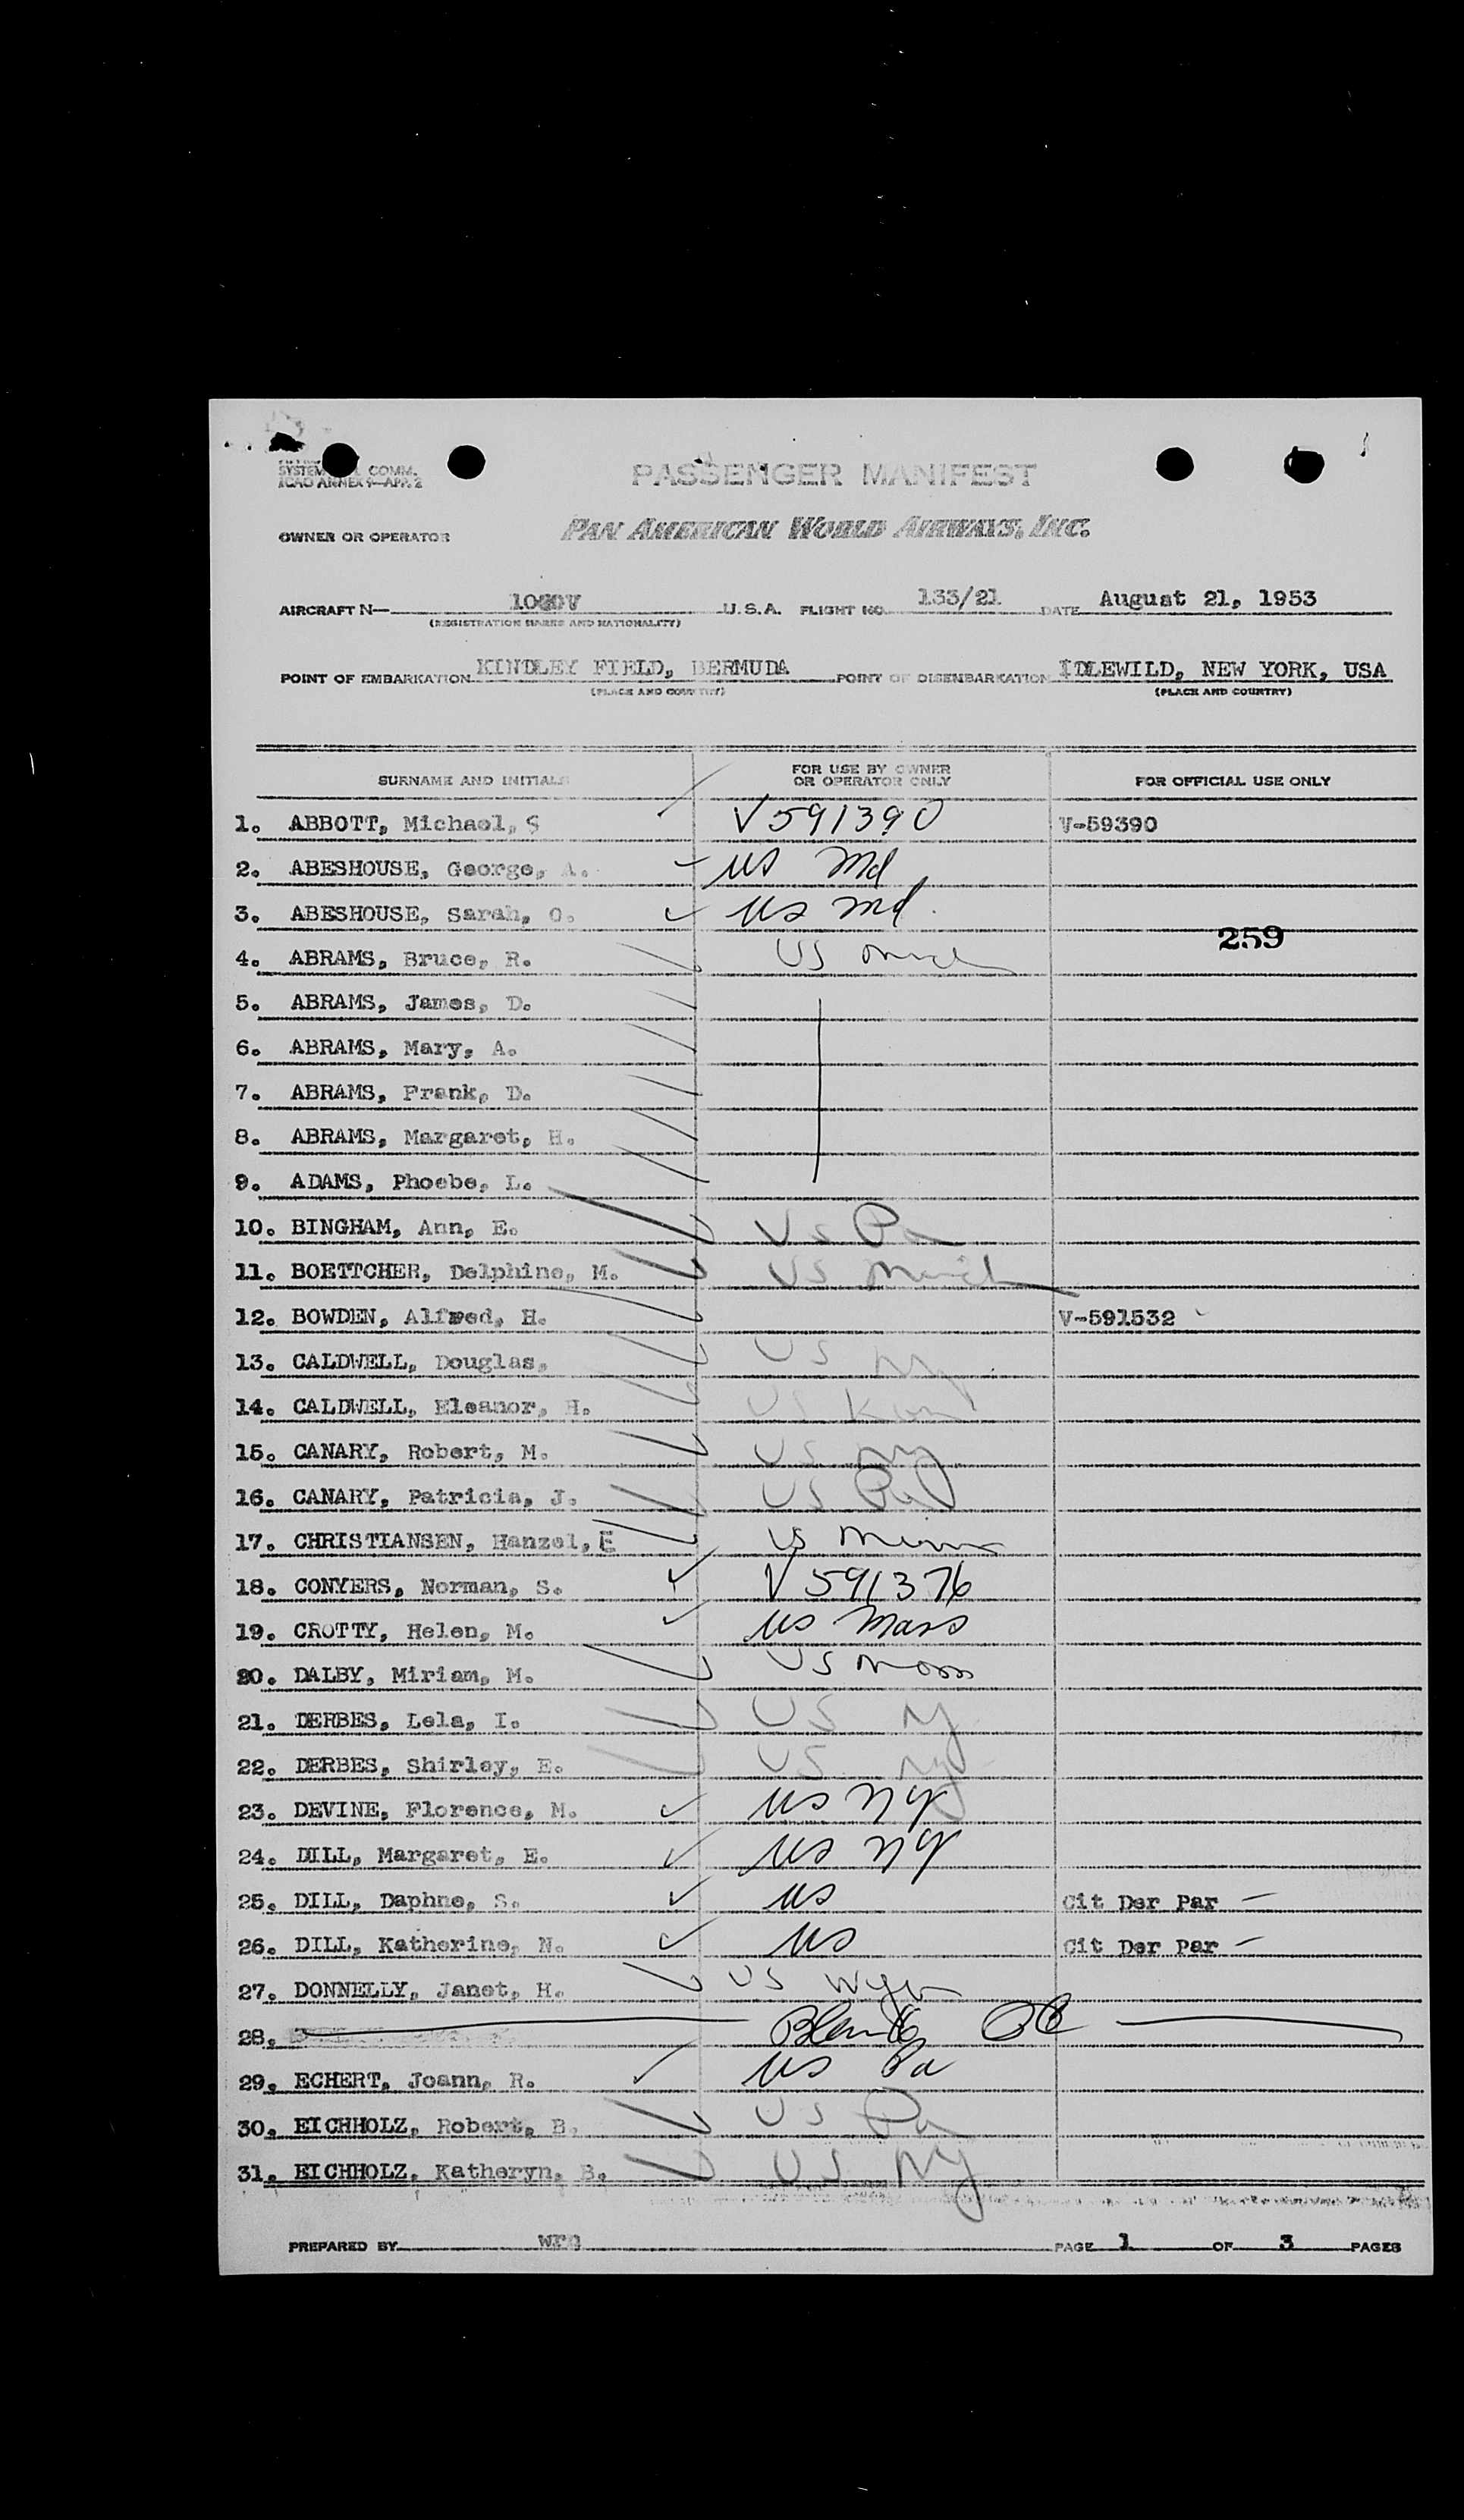 SYSTEM COMM.
ICAO ANNEX 9—APP. 2
PASSENGER MANIFEST
OWNER OR OPERATOR PAN AMERICAN WORLD AIRWAYS, INC.
AIRCRAFT N— U.S.A. FLIGHT NO. 133/21 DATE August 21, 1953
(REGISTRATION MARKS AND NATIONALITY)
POINT OF EMBARKATION KINDLEY FIELD, BERMUDA POINT OF DISEMBARKATION IDLEWILD, NEW YORK, USA
(PLACE AND COUNTRY) (PLACE AND COUNTRY)
SURNAME AND INITIALS FOR USE BY OWNER OR OPERATOR ONLY FOR OFFICIAL USE ONLY
1. ABBOTT, Michael, S V591390 V-59390
2. ABESHOUSE, George, A. US Md
3. ABESHOUSE, Sarah, O. US Md.
259
4. ABRAMS, Bruce, R. US Mich
5. ABRAMS, James, D.
6. ABRAMS, Mary, A.
7. ABRAMS, Frank, D.
8. ABRAMS, Margaret, H.
9. ADAMS, Phoebe, L.
10. BINGHAM, Ann, E. US Pa
11. BOETTCHER, Delphine, M. US Mich
12. BOWDEN, Alfred, H. V-591532
13. CALDWELL, Douglas, US NY
14. CALDWELL, Eleanor, H. US Kan
15. CANARY, Robert, M. US NY
16. CANARY, Patricia, J. US Pa
17. CHRISTIANSEN, Hanzel, E US Minn
18. CONYERS, Norman, S. V591376
19. CROTTY, Helen, M. US Mass
20. DALBY, Miriam, M. US Mass
21. DERBES, Lela, I. US NY
22. DERBES, Shirley, E. US NY
23. DEVINE, Florence, M. US NY
24. DILL, Margaret, E. US NY
25. DILL, Daphne, S. US Cit Der Par -
26. DILL, Katherine, N. US Cit Der Par -
27. DONNELLY, Janet, H. US Wyo
28. Blank
29. ECHERT, Joann, R. US Pa
30. EICHHOLZ, Robert, B. US Pa
31. EICHHOLZ, Katheryn, B. US NY
PREPARED BY PAGE 1 OF 3 PAGES